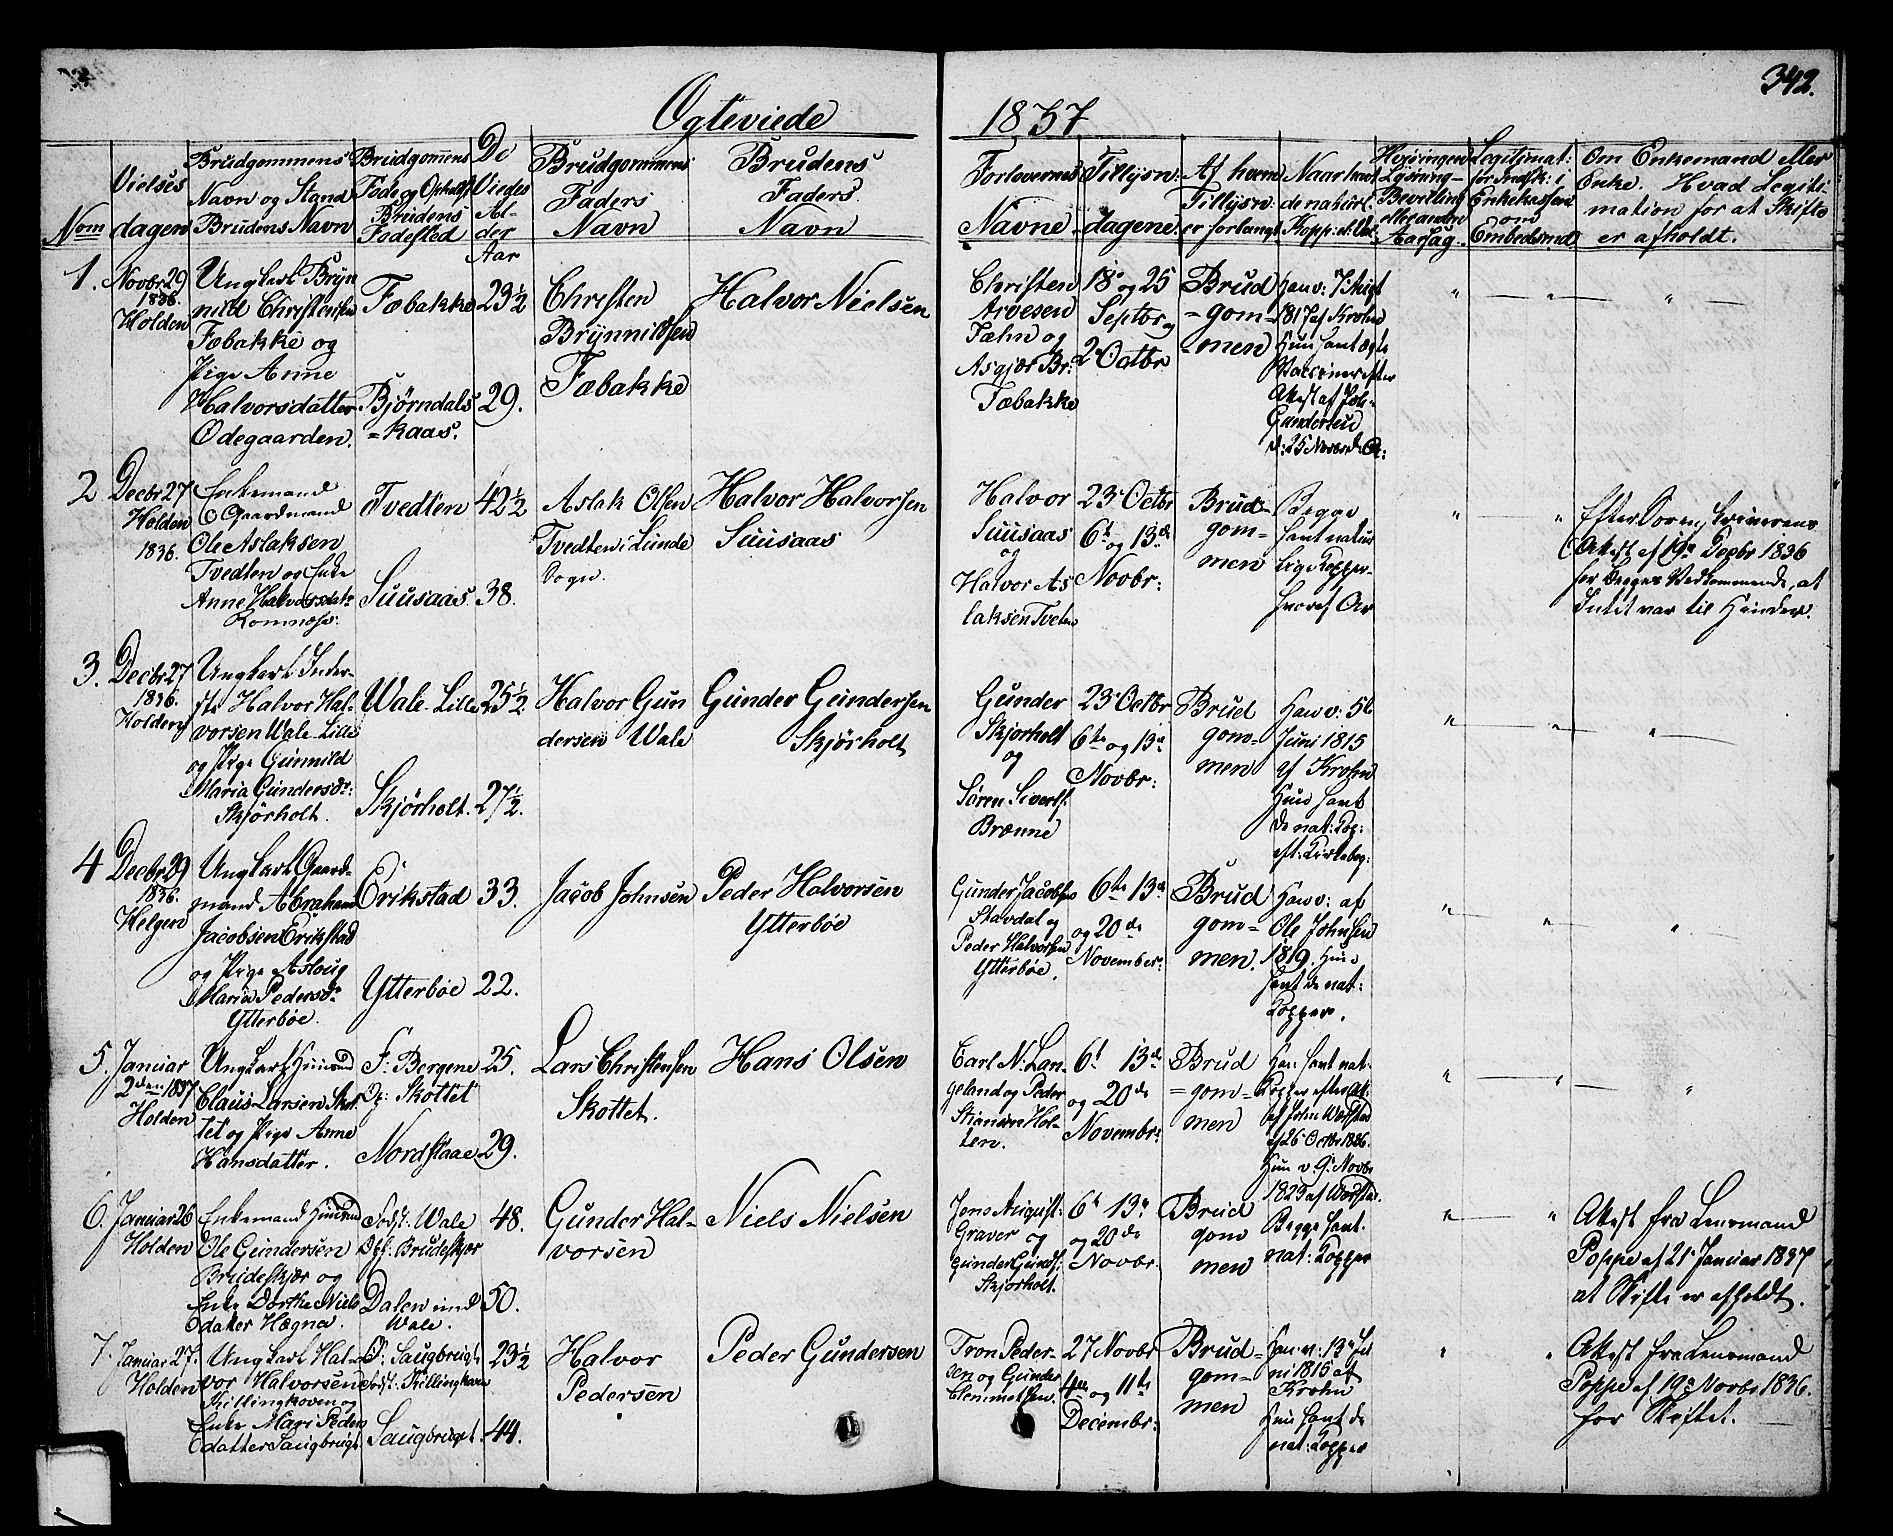 342.
Ogteviede
1837
Nom
Vielses
dagen
Brudgommens
Navn og Stand
Brudens Navn
Brudgomens
Fode og Opholdst
Brudens
Fodested
De
Viedes
Al-
der
Aar
Brudgommens
Faders
Navn
Brudens
Faders
Navn
Forlovernes
Navne
Tillysn:
dagene
Af hvem
Tillysn:
er forlangt
Naar havt
de naturl.
Kopp: el: Vac
Lysning-
Bevilling
eller anden
Aarsag.
Legitimat:
for Indsk: i
Enkekassen
om
Embedsmd
Om Enkemand eller
Enke. Hvad Legiti-
mation for at Skifte
er afholdt.
1.
Novbr 29
1836.
Holden
Ungkarl Bryn
nild Christensen
Fæbakke og
Pige Anne
Halvorsdatter
Odegaarden.
Fæbakke
Bjørndals
=kaas.
23½
29.
Christen
Brynnildsen
Fæbakke
Halvor Nielsen
Christen
Arvesen
Fæhn og
Asgjær Br:
Fæbakke
18 og 25
Septbr og
2 Octbr
Brud
=gom=
=men
Han v: 7 Augt
1817 af Krohn
Hun havt ægte
Vacciner efter
Attest af Joh.
Gundersen
d: 25 Novbr d: A:
2
Decbr 27
Holden
1836.
Enkemand
Gaardmand
Ole Aslaksen
Tvedten og Enke
Anne Halvorsdatr
Romnæss
Tvedten
Suusaas
42½
38.
Aslak Olsen
Tvedten i Lunde
Sogn.
Halvor Halvorsen
Suusaas
Halvor
Suusaas
og
Halvor As
laksen Tveten
23 Octbr
6te og 13de
Novbr:
Brud=
gom=
men
Begge
havt natur
lig Kopper
Efter Sorenskriverens
Attest af 19 Decbr 1836
for begges Vedkommende, at
Intet var til Hinder.
3.
Decbr 27
1836.
Holden
Ungkarl Inder-
ste Halvor Hal-
vorsen Wale-Lille
og Pige Gunnild
Maria Gundersdr:
Skjørholt.
Wale-Lille
Skjørholt.
25½
27½.
Halvor Gun
dersen Wale
Gunder Gundersen
Skjørholt
Gunder
Skjørholt
og
Søren Siverts.
Brænne
23 Octbr
6te og 13de
Novbr:
Brud
gom=
men
Han v: 5te
Juni 1815
af Krohn
Hun havt
de nat: Kop:
eft: Kirkebog:
4
Decbr 29
1836.
Helgen
Ungkarl Gaard-
mand Abraham
Jacobsen Erikstad
og Pige Aslaug
Maria Pedersdr
Ytterbøe.
Erikstad
Ytterbøe
33.
22.
Jacob Johnsen
Peder Halvorsen
Ytterbøe
Gunder Jacobsen
Stavdal og
Peder Halvorsen
Ytterbøe.
6te 13de
og 20de
November
Brud
gom=
men.
Han v: af
Ole Johnsen
1819. Hun
havt de nat:
Kopper.
5.
Januar
2den 1837
Holden
Ungkarl Huusmd
Claus Larsen Skot
tet og Pige Anne
Hansdatter.
F: Bergene
Op: Skottet
Nordstaae
25.
29.
Lars Christensen
Skottet.
Hans Olsen
Carl N: Lan
geland og Peder
Stiansen Hol-
ten.
6te 13de
og 20de
Novembr:
Brud
=gom=
men
Han havt nat-
Kopper efter At:
af John Wærstad
af 26 Octbr 1836.
Hun v. 9 Novbr
1823 af Wærstad.
6.
Januar 26
Holden
Enkemand Huusmd
Ole Gundersen
Brudeskjær og
Enke Dorthe Niels
datter Hægna.
Fodst: Wale
Oph: Brudeskjær
Dalen und
Wale.
48.
50.
Gunder Hal-
vorsen
Niels Nielsen
Jens August:
Graver og
Gunder Gunds:
Skjørholt.
6te 13de
og 20de
Novbr.
Brud
gom
men
Begge havt
nat: Kopper
Attest fra Lensmand
Poppe af 21 Januar 1837
at Skifte er afholdt.
7.
Januar 27.
Holden
Ungkarl Hal-
vor Halvorsen
Killingkoven og
Enke Mari Peders
datter Saugbrugt.
O: Saugbrugt
Fodst: Killingkoven
Saugbrugt.
23½
44.
Halvor
Pedersen
Peder Gundersen
Tron Peder-
sen og Gunder
Clemmetsen.
27 Novbr
4de og 11te
Decembr:
Brud=
gom=
men
Han v: 13 Ju
ni 1815 af
Krohn
Hun havt de
nat: Kopper
Attest fra Lensmand
Poppe af 19 Novbr 1836.
for Skiftet.